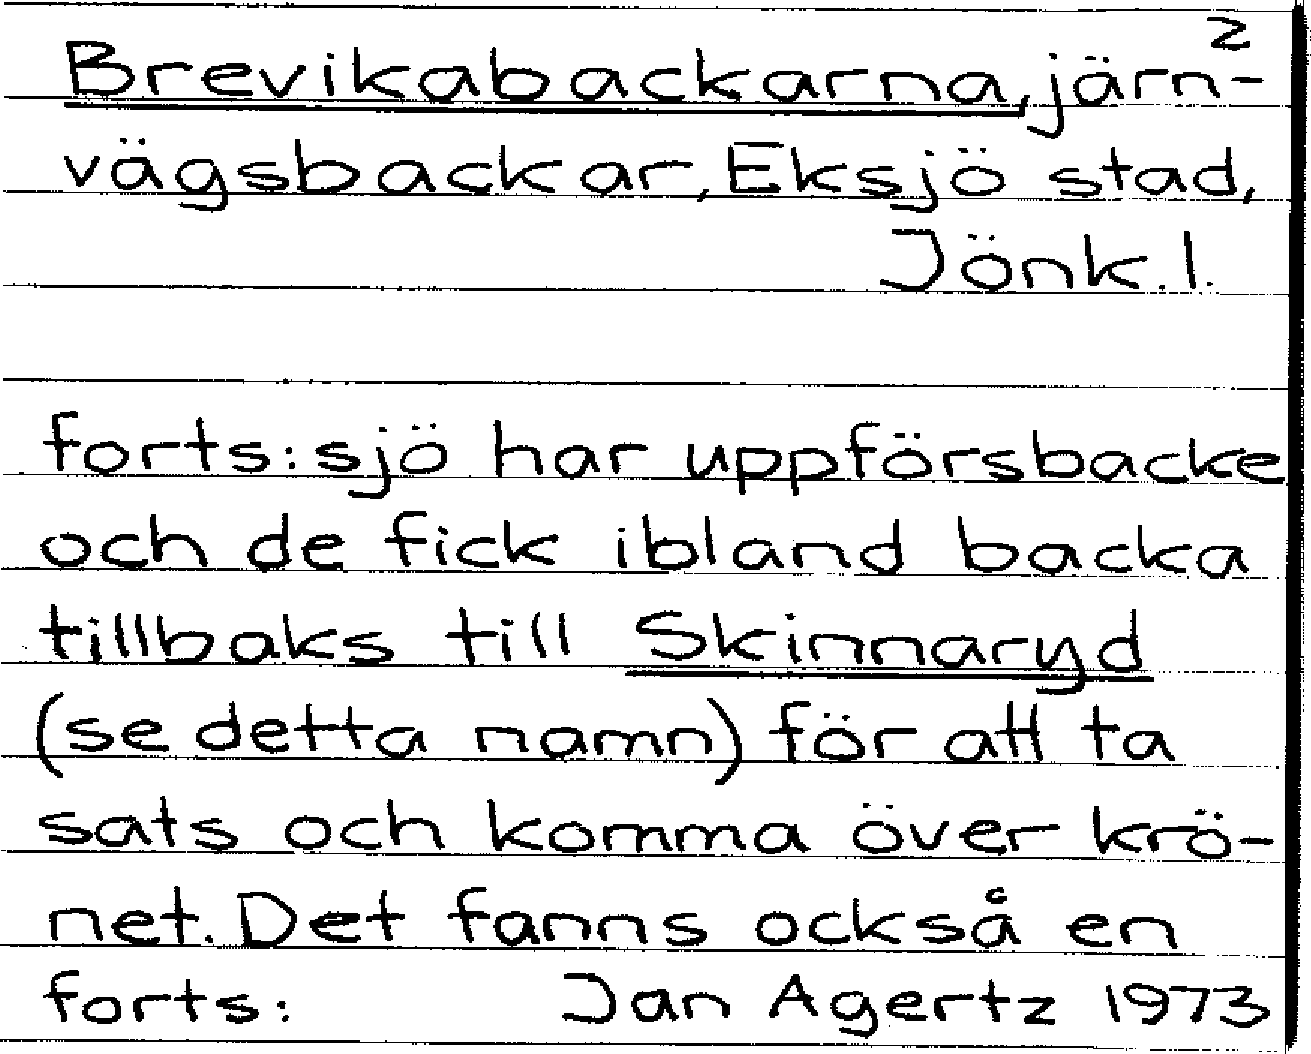 2
Brevikabackarna, järn-
vägsbackar, Eksjö stad,
Jönk.l.
forts: sjö har uppförsbacke
och de fick ibland backa
tillbaks till Skinnaryd
(se detta namn) för att ta
sats och komma över krö-
net. Det fanns också en
forts: Jan Agertz 1973